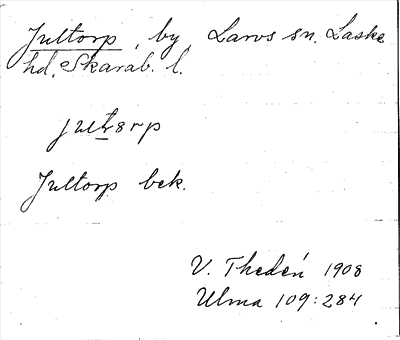 Jultorp, by, Larvs sn. Laske
hd, Skarab. l.
Jultorp bek.
V. Thedén 1908
Ulma 109:284